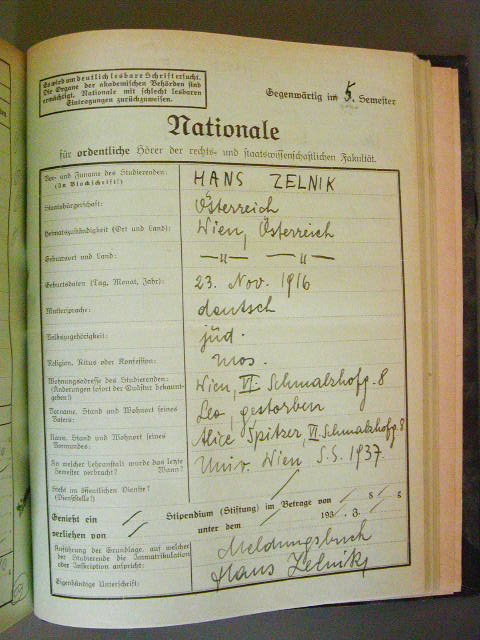 Es wird um deutlich lesbare Schrift ersucht.
Die Organe der akademischen Behörden sind
ermächtigt, Nationale mit schlecht lesbaren
Eintragungen zurückzuweisen.
Gegenwärtig im 5. Semester
Nationale
für ordentliche Hörer der rechts- und staatswissenschaftlichen Fakultät.
Vor- und Zuname des Studierenden: HANS ZELNIK
(In Blockschrift!)
Staatsbürgerschaft: Österreich
Heimatzuständigkeit (Ort und Land): Wien, Österreich
Geburtsort und Land: —„— —„—
Geburtsdaten (Tag, Monat, Jahr): 23. Nov. 1916
Muttersprache: deutsch
Volkszugehörigkeit: jüd.
Religion, Ritus oder Konfession: mos.
Wohnungsadresse des Studierenden: Wien, VI. Schmalzhofg. 8
(Änderungen sofort der Quästur bekannt-
geben!)
Vorname, Stand und Wohnort seines Leo, gestorben
Vaters:
Name, Stand und Wohnort seines Alice Spitzer, VI. Schmalzhofg. 8
Vormundes:
An welcher Lehranstalt wurde das letzte Univ. Wien, S.S. 1937.
Semester verbracht? Wann?
Steht im öffentlichen Dienste?
(Dienststelle!)
Genießt ein Stipendium (Stiftung) im Betrage von S g
verliehen von unter dem 193 . Z.
Anführung der Grundlage, auf welcher Meldungsbuch
der Studierende die Immatrikulation
oder Inskription anspricht:
Eigenhändige Unterschrift: Hans Zelnik